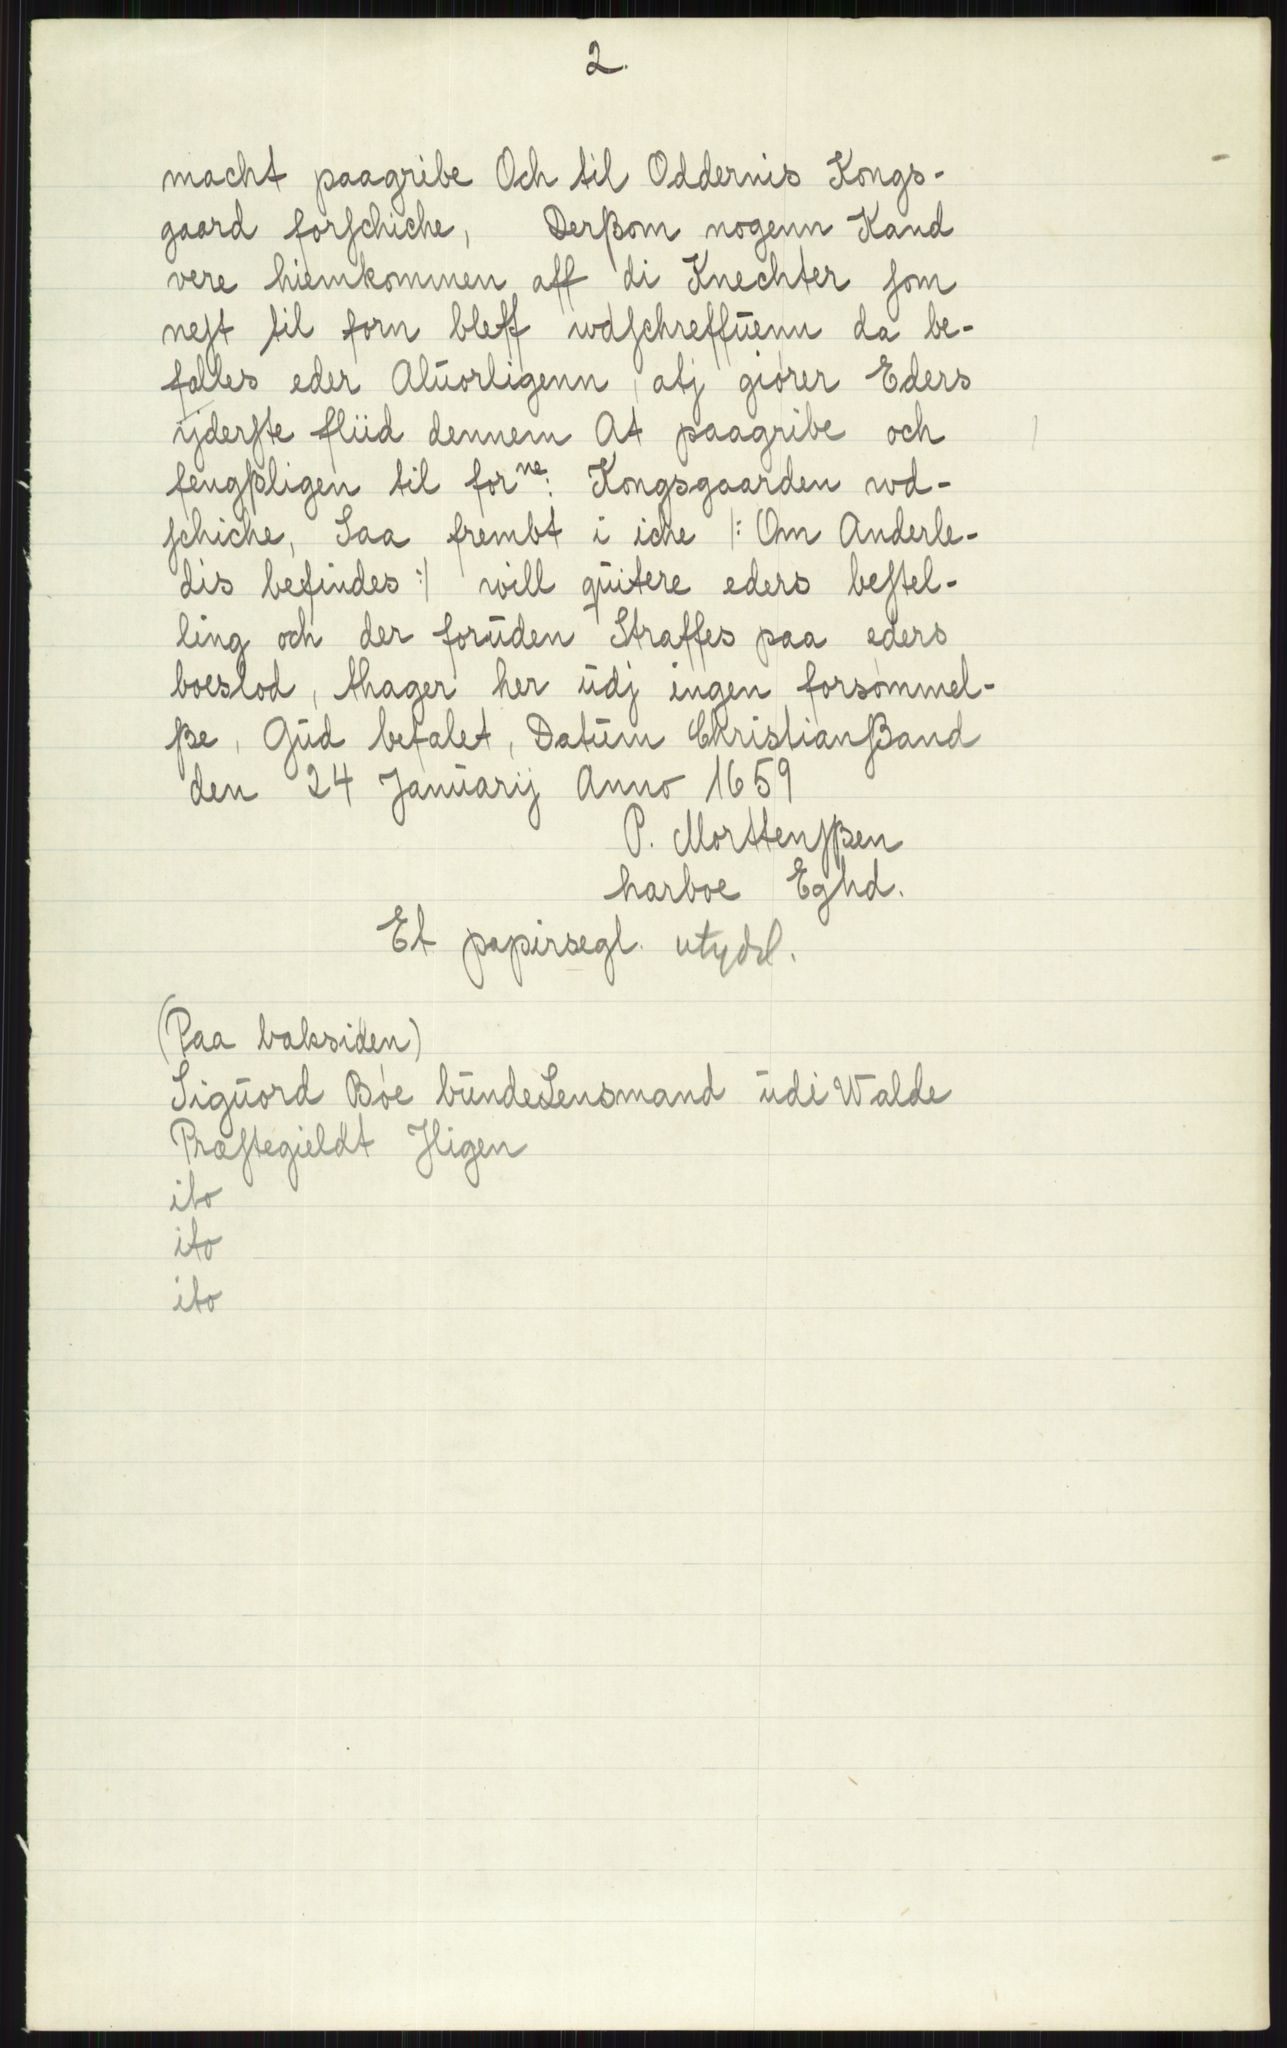 2.
macht paagribe Och til Oddernis Kongs-
gaard forschiche, Derßom nogenn Kand
vere hiemkommen aff di Knechter som
nest til forn bleff wdschreffŭenn da be-
falles eder Alŭorligenn, atj giörer Eders
ijderste fliid dennem At paagribe och
fengßligen til for^ne: Kongsgaarden wd-
schiche, Saa frembt i iche /: Om Anderle-
dis befindes :/ will qŭitere eders bestel-
ling och der forŭden Straffes paa eders
boeslod, thager her ŭdj ingen forsømmel-
ße, Gŭd befalet, Datŭm Christianßand
den 24 Janŭarij Anno 1659
P. Morttensßen
harboe Eghd.
Et papirsegl. utydel.
(Paa baksiden)
Sigŭord Bóe bŭndeLensmand ŭdi Walde
Præstegieldt Hligen
ito
ito
ito